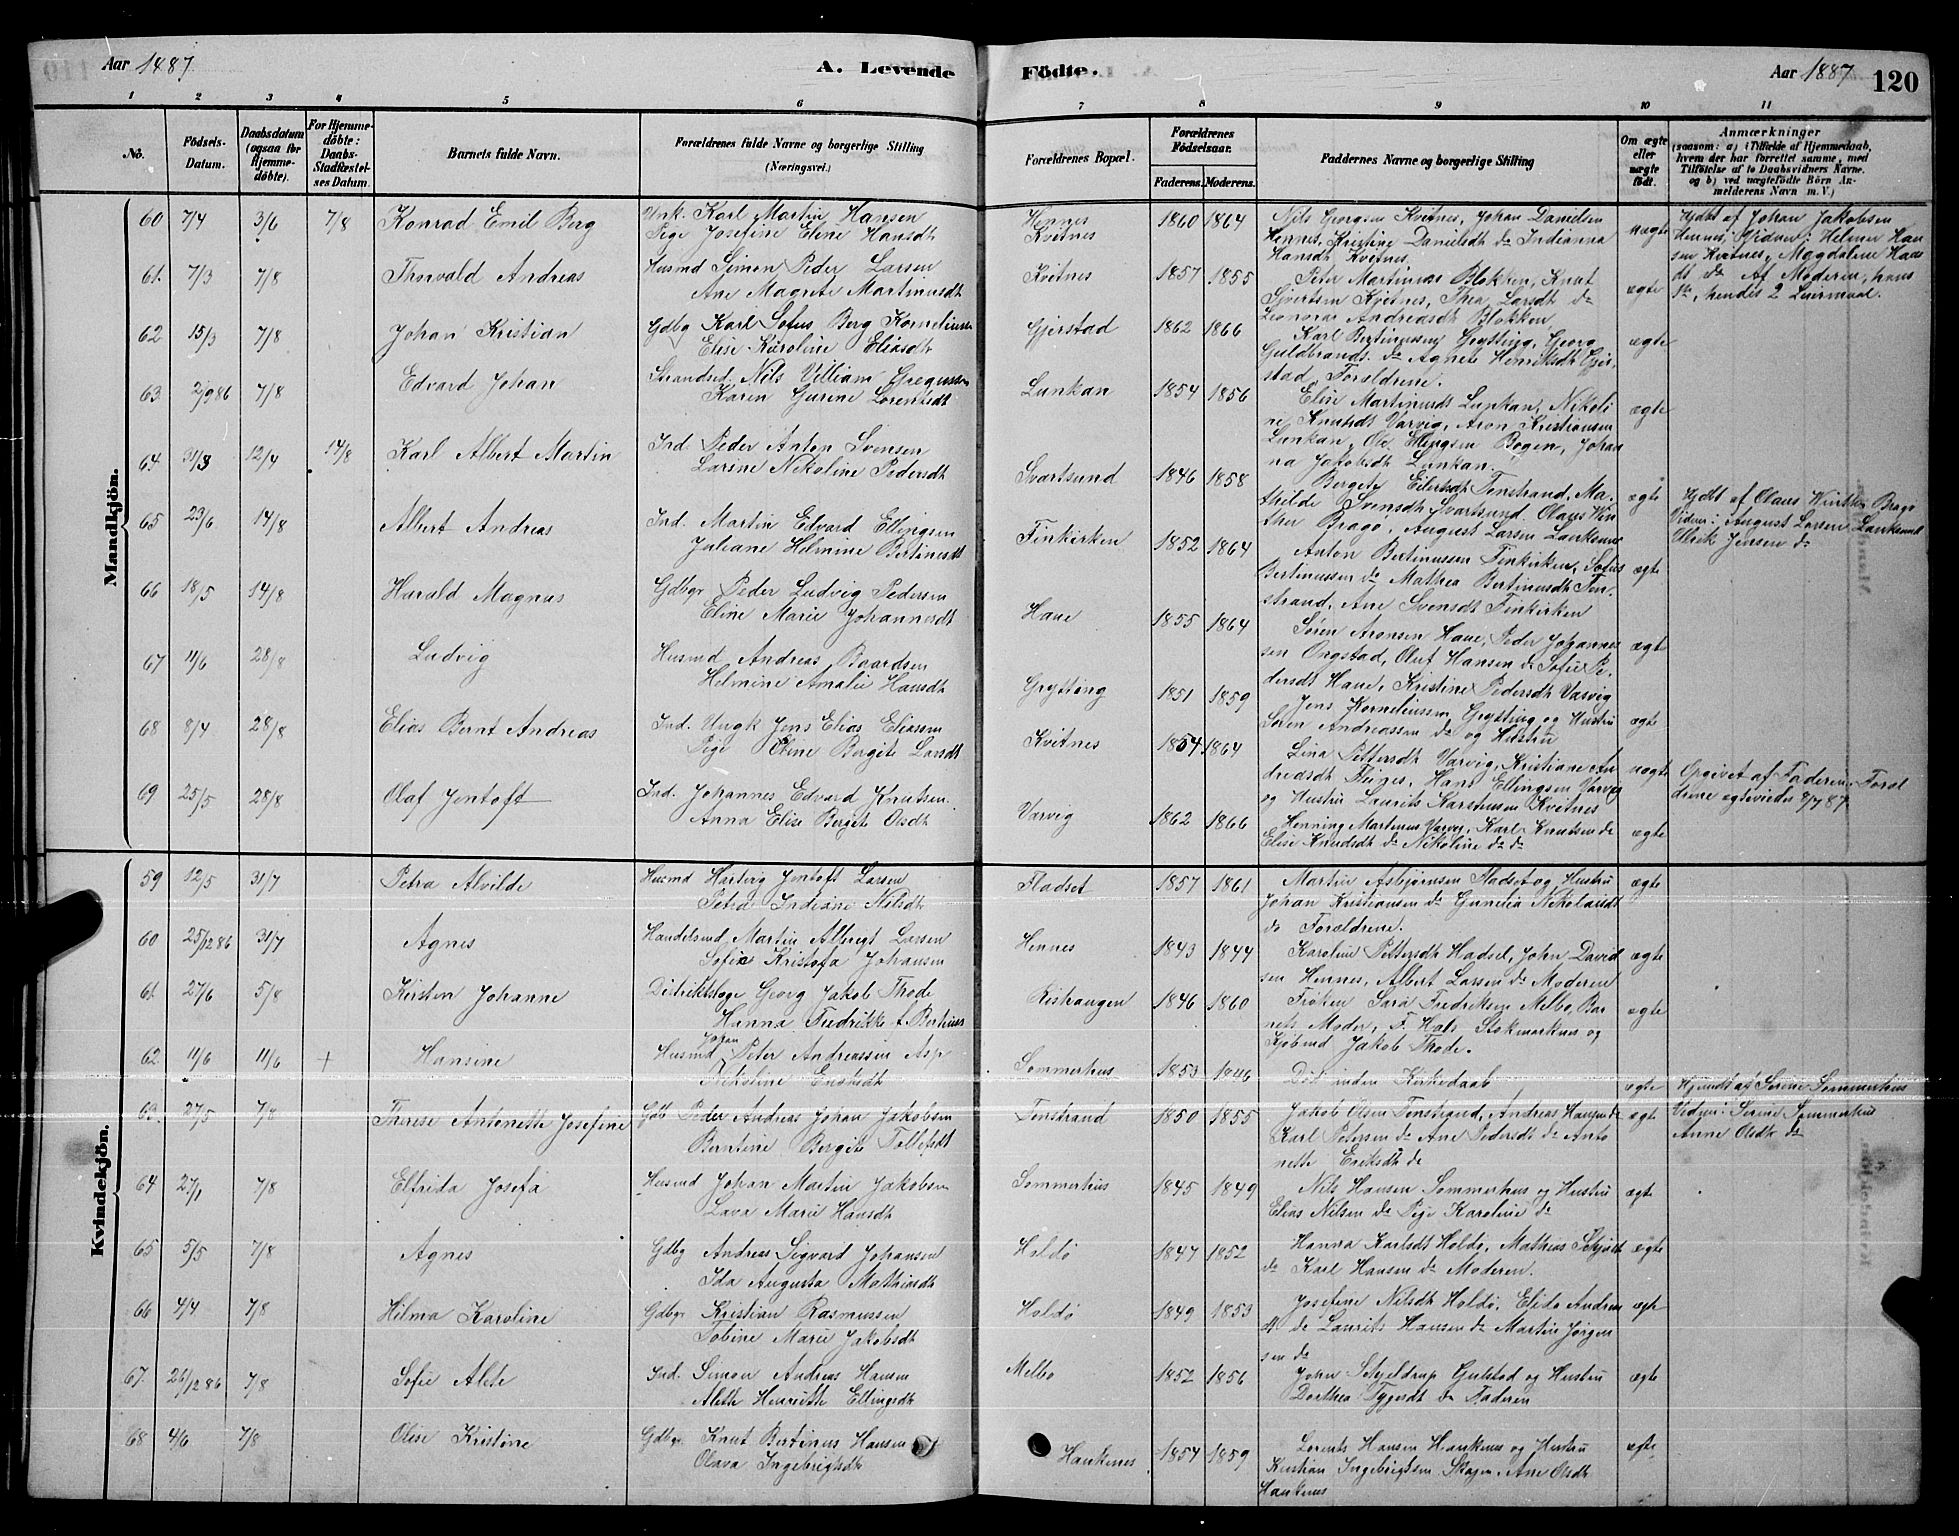 Aar 1887.
A. Levende
Födte.
Aar 1887
120
1 2 3 4 5 6 7 8 9 10 11
No.
Födsels-Datum.
Daabsdatum (ogsaa for Hjemme-döbte).
For Hjemme-döbte: Daabs-Stadfæstel-ses Datum.
Barnets fulde Navn.
Forældrenes fulde Navne og borgerlige Stilling (Næringsvei.)
Forældrenes Bopæl.
Forældrenes Födselsaar.
Faderens. Moderens.
Faddernes Navne og borgerlige Stilling
Om ægte eller uægte födt.
Anmærkninger
(saasom: a) i Tilfælde af Hjemmedaab, hvem der har forrettet samme, med Tilföielse af to Daabsvidners Navne. og b) ved uægtefödte Börn An-melderens Navn m. V.)
Mandkjön.
60 7/4 3/6 7/8 Konrad Emil Berg Unk. Karl Martin Hansen
Pige Josefine Eline Hansdt
Hennes
Kvitnes
1860 1864 Nils Georgsen Kvitnes, Johan Danielsen
Hennes, Kristine Danielsdt do Indianna
Hansdt Kvitnes
uægte
Hjdbt af Johan Jakobsen
Hennes, Vidner: Helmer Han
sen Kvitnes, Magdalene Hans
dt do Af Moderen, hans
1ste, hendes 2 Leiermaal.
61. 7/3 7/8 Thorvald Andreas Husmd Simon Peder Larsen
Ane Magrete Martinusdt
Kvitnes 1857 1855 Peter Martinus Blokken, Knut
Sivertsen Kvitnes, Thea Larsdt do
Leonora Andreasdt Blokken
ægte
62 15/3 7/8 Johan Kristian Gdbg Karl Sofus Berg Kornelius
Elise Karoline Eliasdt
Gjerstad 1862 1866 Karl Bertinussen Grytting, Georg
Guldbrands. do Agnete Henriksdt Gjer
stad, Forældrene.
ægte
63 2/9 86 7/8 Edvard Johan Strandsd. Nils Villiam Gregussen
Karen Gurine Lorentsdt
Lunkan 1854 1856 Elise Martinusdt Lunkan, Nikoli
ne Knutsdt Varvig, Aron Kristiansen
Lunkan, Ole Ellingsen Bogen, Johan
na Jakobsdt Lunkan.
ægte
64 31/3 12/4 14/8 Karl Albert Martin Ind. Peder Anton Svensen
Larsine Nikoline Pedersdt
Svartsund 1846 1858 Bergete Eilertsdt Tenstrand, Ma-
thilde Svensdt Svartsund. Olaus Win
ther Bragø, August Larsen
ægte
Hjdbt af Olaus Winther Bragø
Vidner: August Larsen
Ulrik Jensen do
65 23/6 14/8 Albert Andreas Ind. Martin Edvard Ellingsen
Juliane Helmine Bertinusdt
Finkirken 1852 1864 Anton Bertinussen Finkirken, Sofus
Bertinussen do Mathea Bertinusdt Ten-
strand, Ane Svensdt Finkirken
ægte
66 18/5 14/8 Harald Magnus Gdbgr Peder Ludvig Pedersen
Eline Marie Johannesdt
Haue 1855 1864 Søren Aronsen Haue, Peder Johannes
sen Ongstad, Oluf Hansen do Sofie Pe-
dersdt Haue, Kristine Pedersdt Varvig
ægte
67 11/6 28/8 Ludvig Husmd Andreas Baardsen
Helmine Amalie Hansdt
Grytting 1851 1859 Jens Korneliussen Grytting og Hustru
Søren Andreassen do og Hustru
ægte
68 8/4 28/8 Elias Bernt Andreas Ind. Ungk Jens Elias Eliassen
Pige Oline Bergete Larsdt
Kvitnes 1854 1864 Lina Pettersdt Varvig, Kristiane An
dreasdt, Hans Ellingsen Varvig
og Hustru Laurits Karstensen Kvitnes
uægte
Opgivet af Faderen. Foræl
drene egteviedes 8/7 87.
69 25/5 28/8 Olaf Jentoft Ind. Johannes Edvard Knutsen
Anna Elise Bergete Olsdt
Varvig 1862 1866 Henning Martinus Varvig, Karl Knutsen do
Elise Knudsdt do Nikoline do do
ægte
Kvindekjön.
59 12/5 31/7 Petra Alvilde Husmd Hartvig Jentoft Larsen
Petra Indiane Nilsdt
Fladset 1857 1861 Martin Asbjørnsen Fladset og Hustru
Johan Kristiansen do Gunelia Nikolaisdt
do Forældrene.
ægte
60 25/12 86 31/7 Agnes Handelsmd Martin Albregt Larsen
Sofie Kristofa Johansen
Hennes 1843 1844 Karoline Pettersdt Hadsel, John David
sen Hennes, Albert Larsen do Moderen
ægte
61. 27/6 5/8 Kirsten Johanne Distriktslæge Georg Jakob Thode
Hanna Fredrikke f. Bertheus
Rishaugen 1846 1860 Frøken Sara Fredriksen Melbo, Bar
nets Moder, F. Hals Stokmarknes og
Kjøbmd Jakob Thode.
ægte
62 11/6 11/6 + Hansine Husmd Johan Peter Andreassen Asp
Nikoline Enoksdt
Sommerhus 1853 1846 Død inden Kirkedaab ægte
Hjemdbt af Sørine Sommerhus
Vidner: Serine Sommerhus
Anne Olsdt do
63. 27/5 7/8 Therese Antonette Josefine Gdb Peder Andreas Johan Jakobsen
Berntine Bergete Tollefsdt
Tenstrand 1850 1855 Jakob Olsen Tenstrand, Andreas Hansen do
Karl Petersen do Ane Pedersdt do Anto
nette Eriksdt do
ægte
64 27/1 7/8 Elfrida Josefa Husmd Johan Martin Jakobsen
Lava Marie Hansdt
Sommerhus 1845 1849 Nils Hansen Sommerhus og Hustru
Elias Nilsen do Pige Karoline do
ægte
65 5/5 7/8 Agnes Gdbg Andreas Sigvard Johansen
Ida Augusta Mathiasdt
Holdø 1847 1852 Hanna Karlsdt Holdø, Mathias Schjødt
do Karl Hansen do Moderen.
ægte
66 4/4 7/8 Hilma Karoline Gdbgr Kristian Rasmussen
Tobine Marie Jakobsdt
Holdø 1849 1853 Josefine Nilsdt Holdø, Elida Andreas
dt do Laurits Hansen do Martin Jørgen
sen do
ægte
67. 26/12 86 7/8 Sofie Alete Ind. Simon Andreas Hansen
Aleth Henriette Ellingsdt
Melbo 1852 1856 John Schjeldrup Gulstad og Hustru
Dorthea Tygesdt do Faderen
ægte
68 4/6 7/8 Olise Kristine Gdbgr Knut Bertinus Hansen
Olava Ingebrigtsdt
Haukenes 1854 1859 Lorents Hansen Haukenes og Hustru
Kristian Ingebrigtsen Skagen, Ane Olsdt
Haukenes
ægte